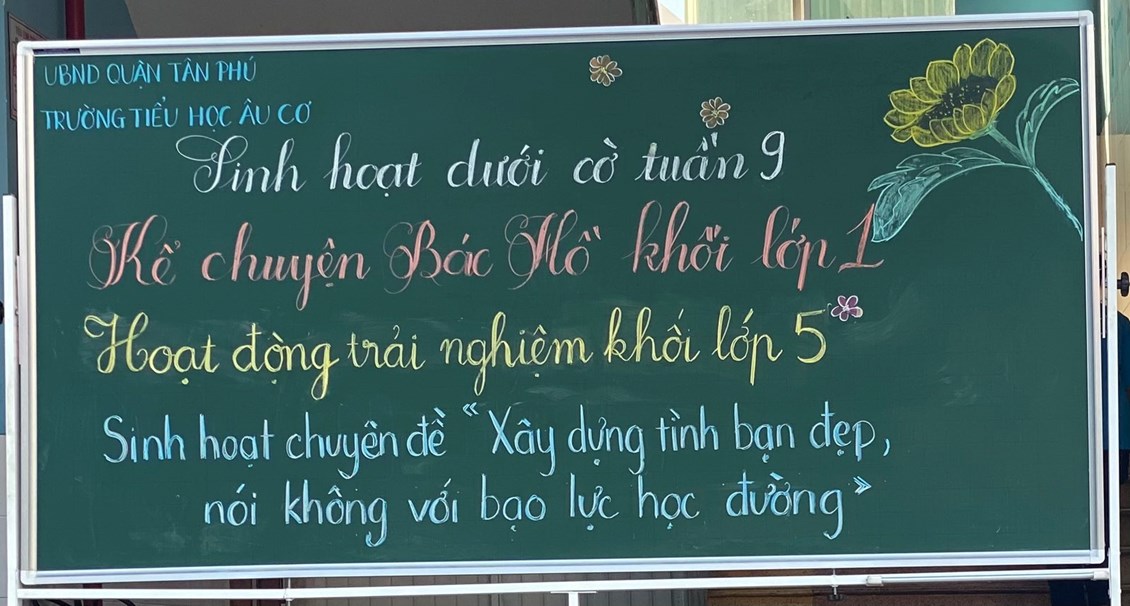 UBND QUẬN TÂN PHÚ
TRƯỜNG TIỂU HỌC ÂU CƠ
Sinh hoạt dưới cờ tuần 9
Kể chuyện Bác Hồ khối lớp 1
Hoạt động trải nghiệm khối lớp 5
Sinh hoạt chuyên đề "Xây dựng tình bạn đẹp,
nói không với bạo lực học đường"